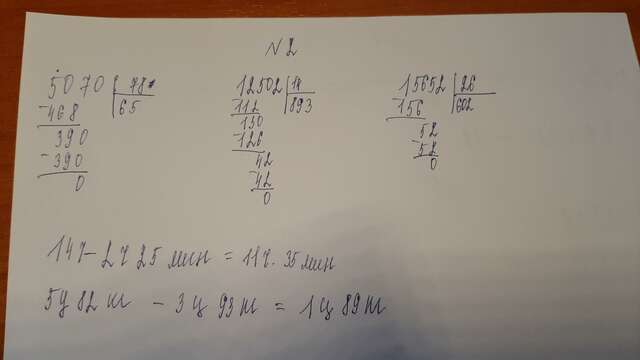 N 2
5070 | 78
-468 | 65
390
-390
0
12502 | 14
-112 | 893
130
-126
42
-42
0
15652 | 26
-156 | 602
52
-52
0
14ч - 2ч 25 мин = 11ч. 35 мин
5ц 82 кг - 3 ц 93 кг = 1 ц 89 кг